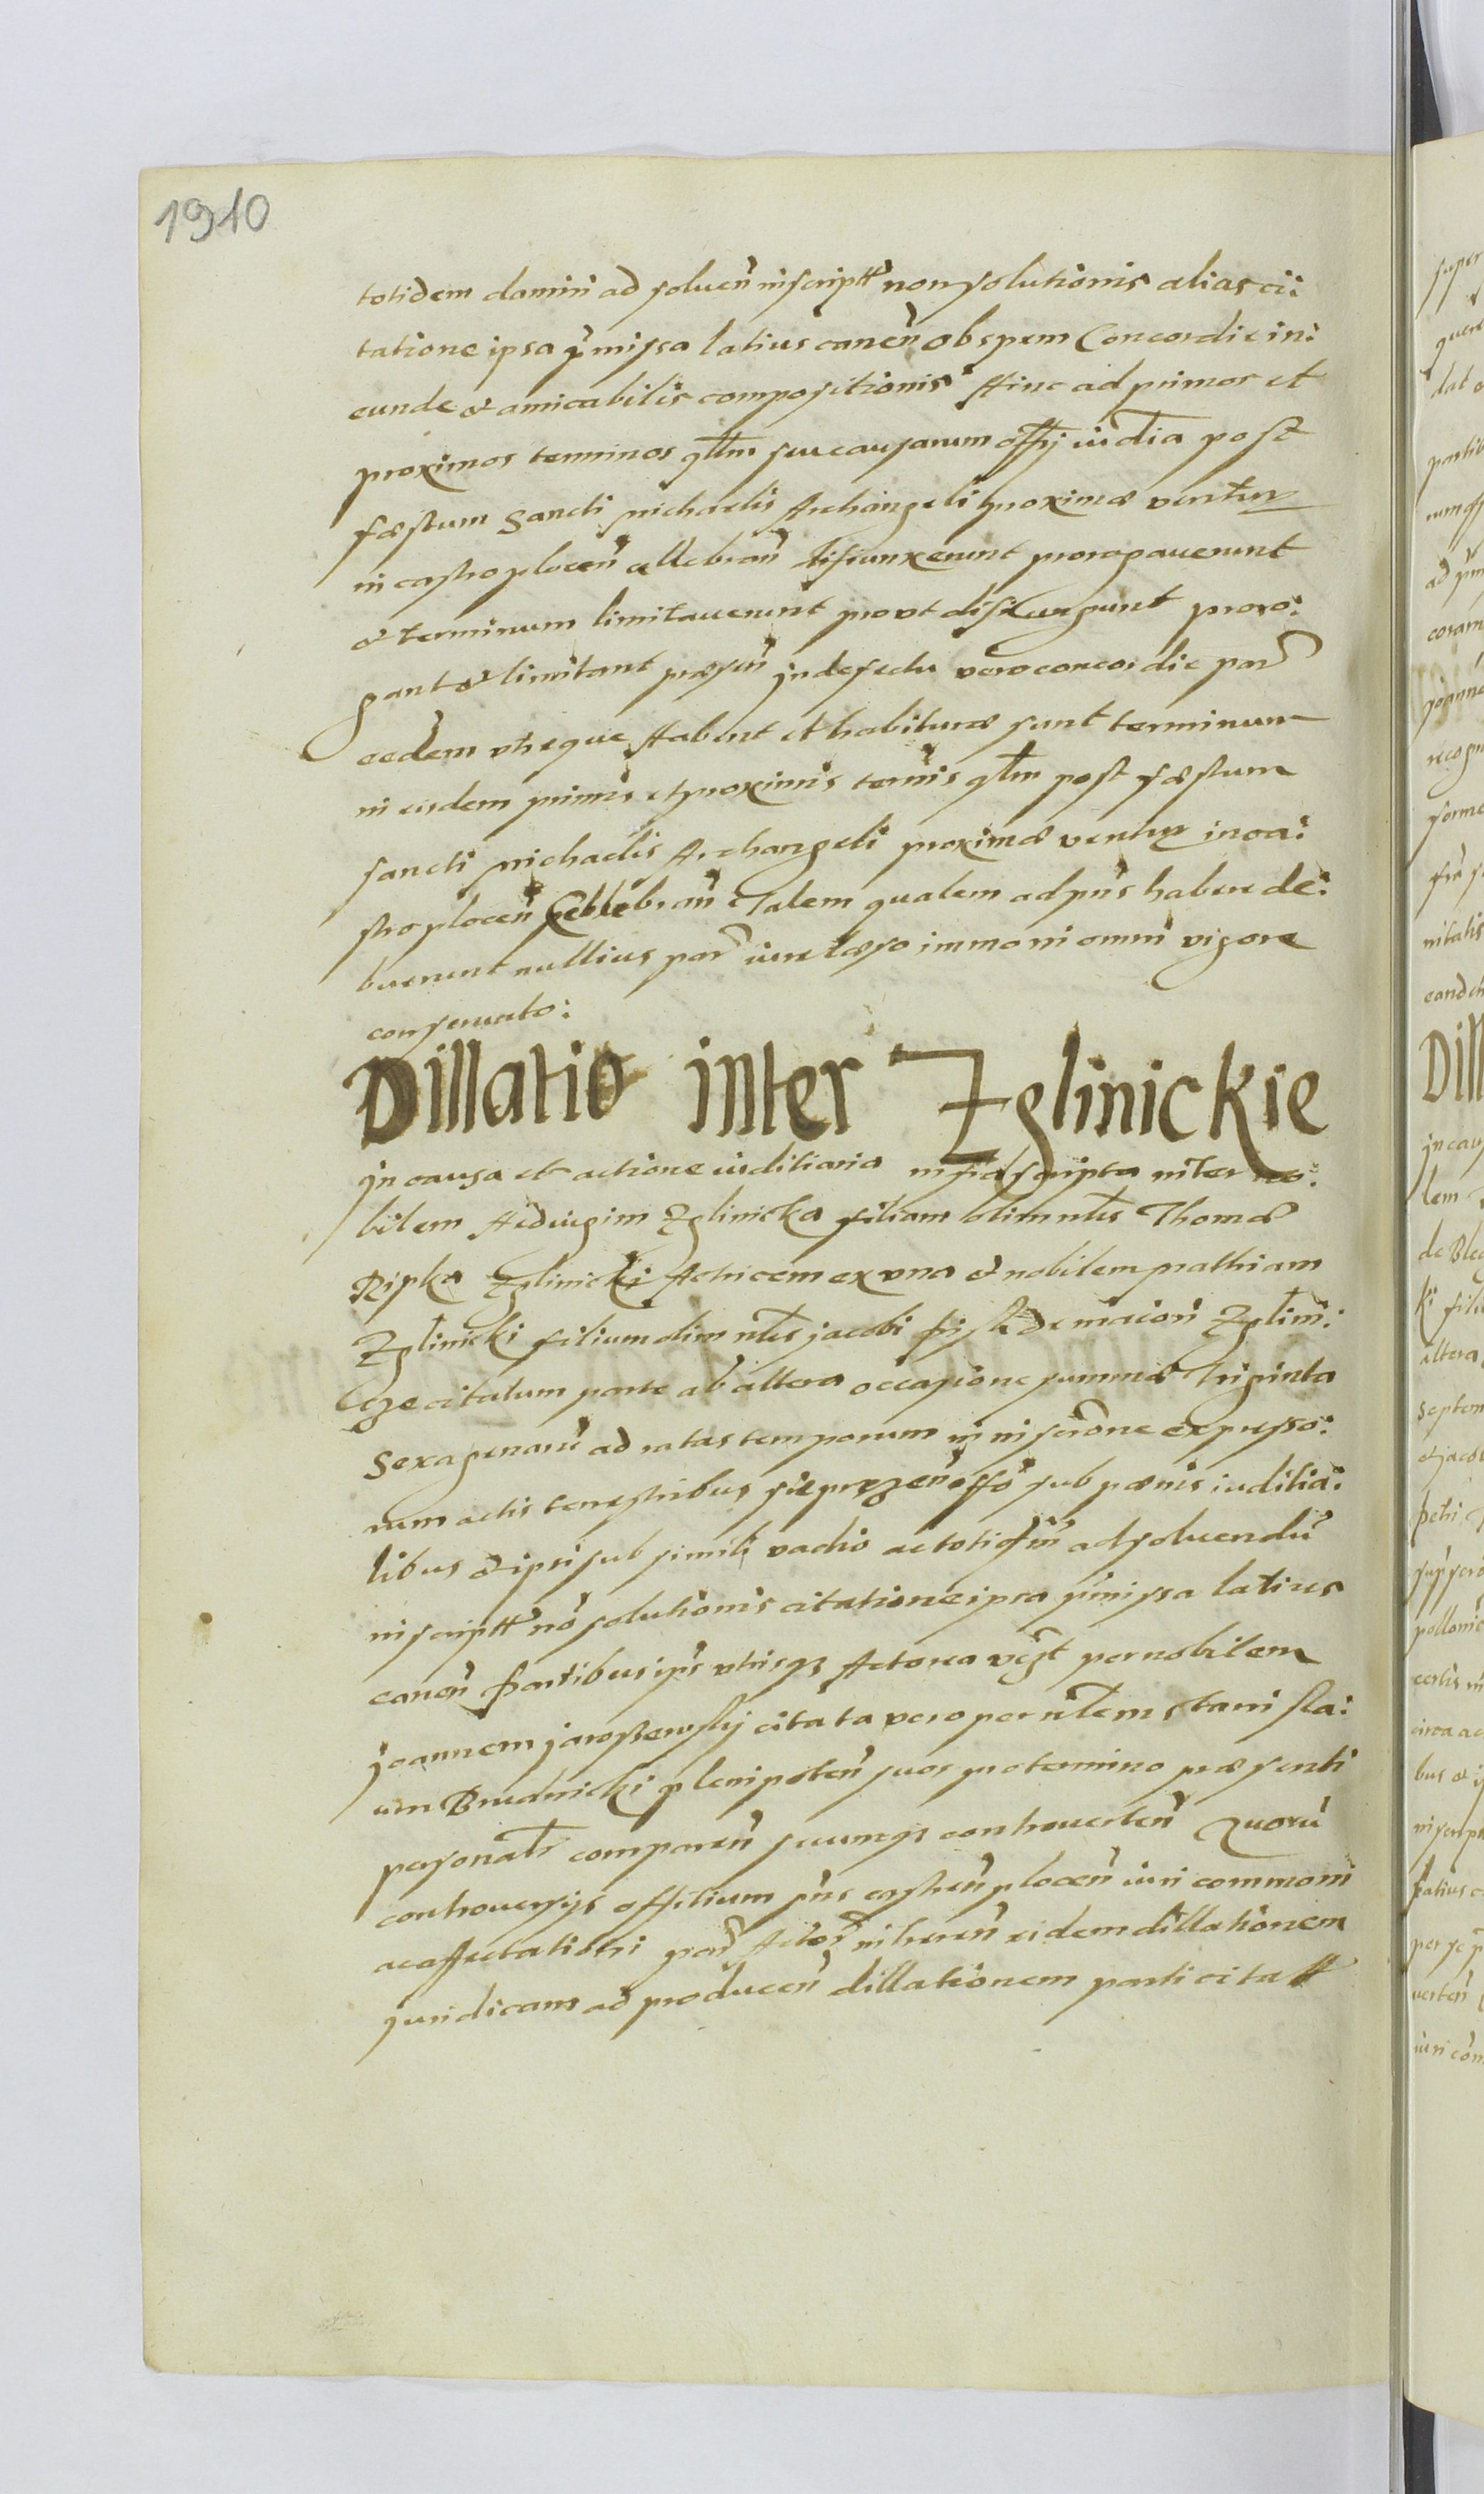 1910
totidem damni ad soluen inscriptt non solutionis alias ci:
tatione ipsa pmissa latius canen ob spem Concordie in:
eunde & amicabilis compositionis Hinc ad primos et
proximos terminos qlm seu causarum offij iudlia post
fæstum Sancti Michaelis Archangeli proximæ ventur
in castro plocen cellebran disiunxerunt prorogauerunt
& terminum limitauerunt provt disiungunt proro:
gant & limitant præsen in defectu vero concordie par
eedem vtreque Habent et habituræ sunt terminum
in eisdem primis et proximis termis qlm post fæstum
sancti Michaelis Archangeli proximæ ventur in ca:
stro plocen Cellebran Talem qualem ad pns habere de:
buerunt nullius par iure læso immo in omni vigore
conseruato:
Dillatio inter Zglinickie
In causa et actione iuditiaria infrascripta inter no:
bilem Heduigim Zglinicka filiam olim nlis Thomæ
Ripka Zglinicki Actricem ex vna & nobilem Mathiam
Zglinicki filium olim nlis Jacobi de maiori Zglini:
cze citatum parte ab altera occasione summæ Triginta
Sexagenaru ad ratas temporum in inscrone expresso:
rum actis terrestribus Sieprzen offo sub pænis iuditia:
libus & ipsi sub simili vadio ac totidm ad soluendu
inscriptt no solutionis citatione ipsa pmissa latius
canen Partibus ips vtrisqz Actorea vizt per nobilem
Joannem Jarossewskij citata vero per nlem Stanisla:
um Brudnicki plenipoten suos pro termino præsenti
personatr comparen seumqz controuerten Quoru
controuersijs offitium pns castren plocen iuri communi
ac affectationi par Actor inheren eidem dillationem
Juridicam ad producen dillationem parti citatt